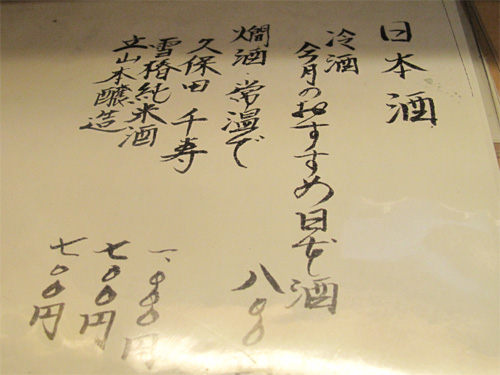 日本酒
冷酒
今月のおすすめ日本酒
八〇〇
燗酒 常温で
久保田 千寿 一、〇〇〇円
雪椿純米酒 七〇〇円
立山本醸造 七〇〇円